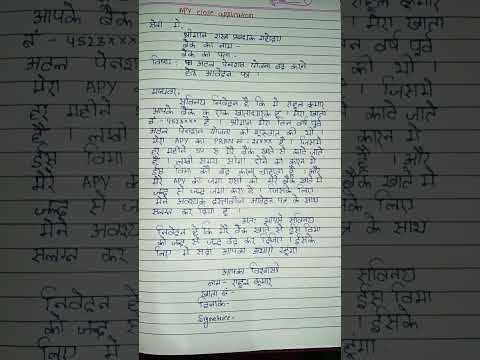 APY close application
सेवा में,
श्रीमान शाखा प्रबंधक महोदय
बैंक का नाम-
बैंक का पता-
विषय: अटल पेन्शन योजना बंद कराने
हेतु आवेदन पत्र।
महाशय,
सविनय निवेदन है कि मैं राहुल कुमार
आपके बैंक का एक खाताधारक हूं। मेरा खाता
नं - 4523×××× है। श्रीमान मेरा तीन वर्ष पूर्व
अटल पेन्शन योजना की शुरुआत की थी
मेरा APY का PRAN नं - ××××× है। जिसमें
हर महीने रू मेरे बैंक खाते से काटे जाते
है। लम्बी समय सीमा होने के कारण मैं
इस बिमा को बंद करना चाहता हूं। और
मेरे APY का जमा राशी को मेरे बैंक खाते में
जल्द से जल्द भेजा जाए। जिसके लिए
मैंने आवश्यक दस्तावेज आवेदन पत्र के साथ
संलग्न कर दिया है।
अतः आपसे सविनय
निवेदन है कि मेरे बैंक खाते से इस बिमा
को जल्द से जल्द बंद कर दिजिए। इसके
लिए मैं सदा आपका आभारी रहूंगा।
आपका विश्वासी
नाम- राहुल कुमार
खाता नं-
दिनांक-
Signature-